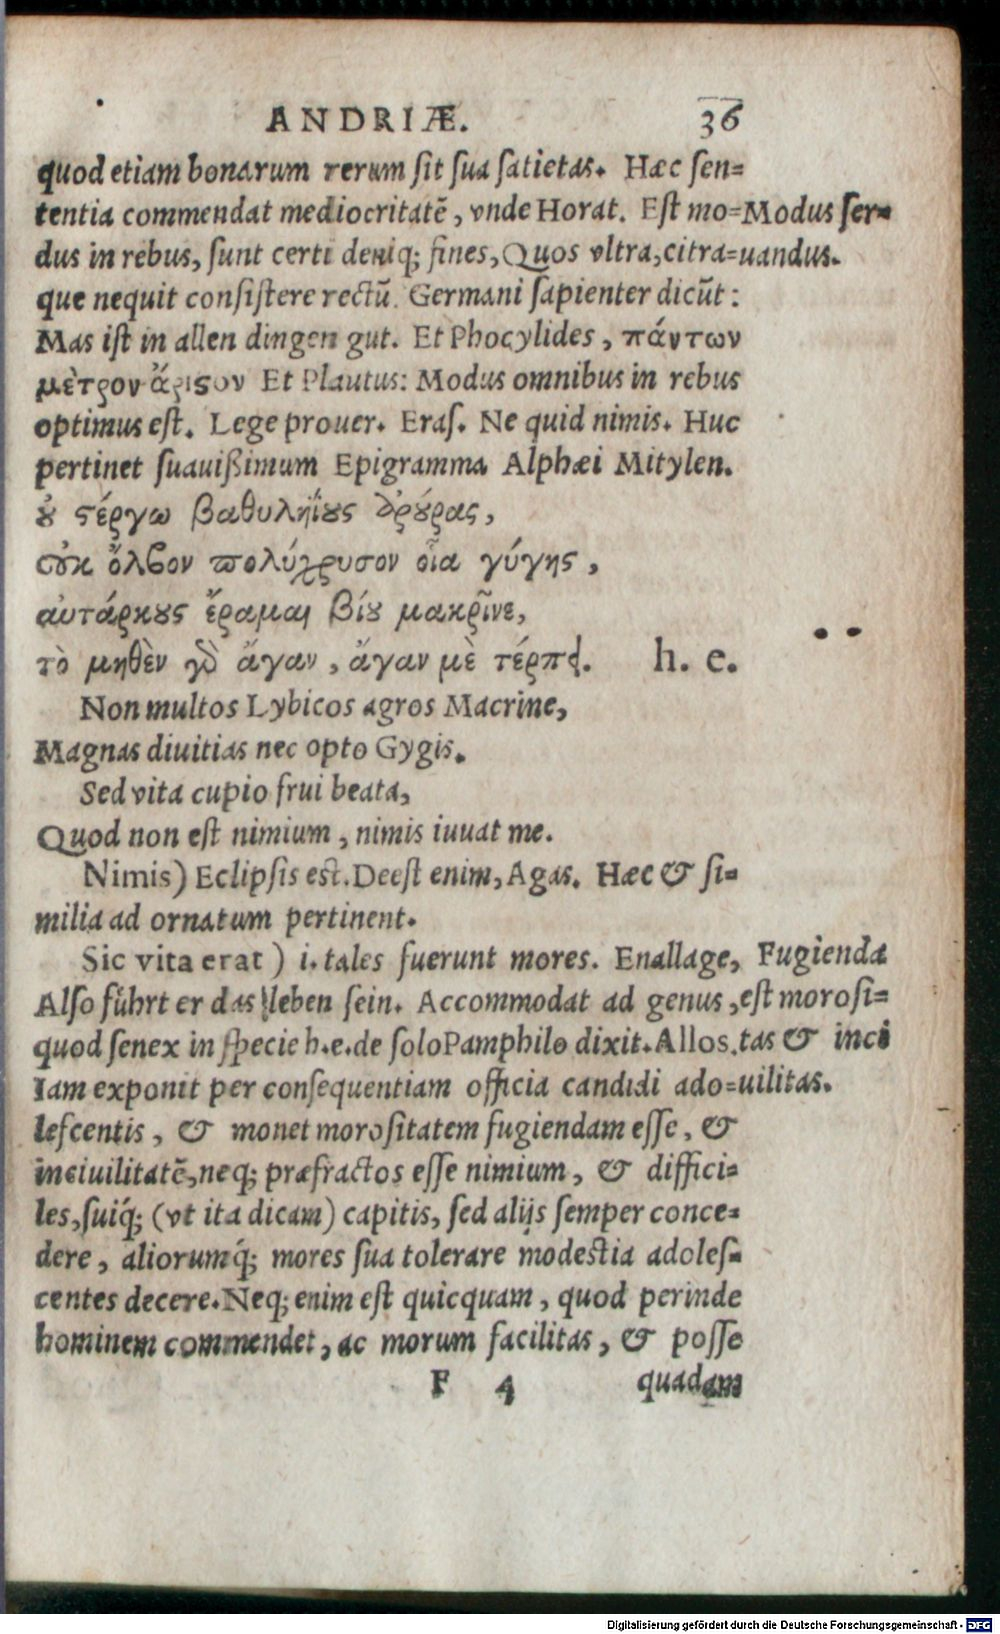 ANDRIÆ. 36
quod etiam bonarum rerum sit sua satietas. Hæc sen=
tentia commendat mediocritatē, vnde Horat. Est mo= Modus ser=
dus in rebus, sunt certi deniq; fines, Quos vltra, citra= uandus.
que nequit consistere rectū. Germani sapienter dicūt:
Mas ist in allen dingen gut. Et Phocylides, πάντων
μὲτρον ἄριϛον Et Plautus: Modus omnibus in rebus
optimus est. Lege prouer. Eras. Ne quid nimis. Huc
pertinet suauißimum Epigramma Alphæi Mitylen.
ȣ̓ ϛέργω βαθυληΐȣς ἀρȣ́ρας,
ȣ̓κ ὄλβον πολύχρυσον οἷα γύγης,
αὐτάρκȣς ἔραμαι βίȣ μακρῖνε,
τὸ μηθὲν γὸ ἄγαν, ἄγαν μὲ τέρπει. h. e.
Non multos Lybicos agros Macrine,
Magnas diuitias nec opto Gygis.
Sed vita cupio frui beata,
Quod non est nimium, nimis iuuat me.
Nimis) Eclipsis est. Deest enim, Agas. Hæc & si=
milia ad ornatum pertinent.
Sic vita erat) i. tales fuerunt mores. Enallage, Fugienda
Also fuͤhrt er das leben sein. Accommodat ad genus, est morosi=
quod senex in specie h.e. de solo Pamphilo dixit. Allos. tas & inci
Iam exponit per consequentiam officia candidi ado= uilitas.
lescentis, & monet morositatem fugiendam esse, &
inciuilitatē, neq; præfractos esse nimium, & diffici=
les, suiq́; (vt ita dicam) capitis, sed alijs semper conce=
dere, aliorumq́; mores sua tolerare modestia adoles=
centes decere. Neq; enim est quicquam, quod perinde
hominem commendet, ac morum facilitas, & posse
F 4 quadam
Digitalisierung gefördert durch die Deutsche Forschungsgemeinschaft - DFG